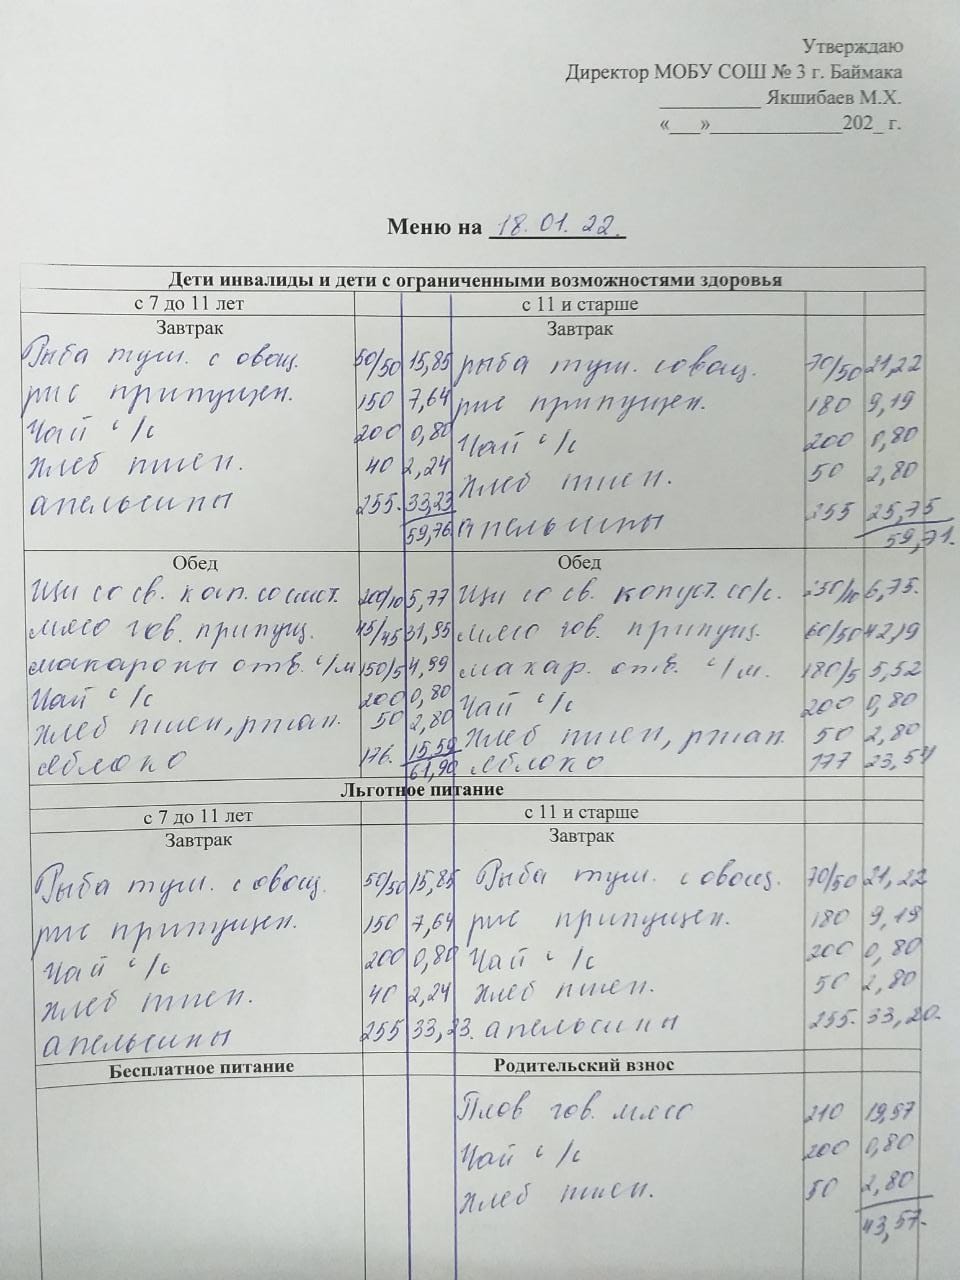 Утверждаю
Директор МОБУ СОШ № 3 г. Баймака
__________ Якшибаев М.Х.
«___»_____________202_ г.
Меню на 18.01.22.
Дети инвалиды и дети с ограниченными возможностями здоровья
с 7 до 11 лет с 11 и старше
Завтрак Завтрак
Рыба туш. с овощ. 50/50 15,85 рыба туш. с овощ. 70/50 21,22
рис припущен. 150 7,64 рис припущен. 180 9,19
Чай с/с 200 0,80 Чай с/с 200 0,80
Хлеб пшен. 40 2,24 Хлеб пшен. 50 2,80
апельсины 255. 33,23 апельсины 255 25,75
59,76 59,71.
Обед Обед
Щи со св. кап. со смет. 200/10 5,77 Щи со св. капуст. со/с. 250/10 6,75.
мясо гов. припущ. 45/45 31,95 мясо гов. припущ. 60/50 42,19
макароны отв. с/м 150/5 4,99 макар. отв. с/м. 180/5 5,52
Чай с/с 200 0,80 Чай с/с 200 0,80
Хлеб пшен, ржан. 50 2,80 Хлеб пшен, ржан. 50 2,80
яблоко 176. 15,59 яблоко 177 23,54
61,90
Льготное питание
с 7 до 11 лет с 11 и старше
Завтрак Завтрак
Рыба туш. с овощ. 50/50 15,85 Рыба туш. с овощ. 70/50 21,22
рис припущен. 150 7,64 рис припущен. 180 9,19
Чай с/с 200 0,80 Чай с/с 200 0,80
Хлеб пшен. 40 2,24 Хлеб пшен. 50 2,80
апельсины 255 33,23. апельсины 255. 33,20.
Бесплатное питание Родительский взнос
Плов гов. мясо 210 19,97
Чай с/с 200 0,80
Хлеб пшен. 50 2,80
43,57.